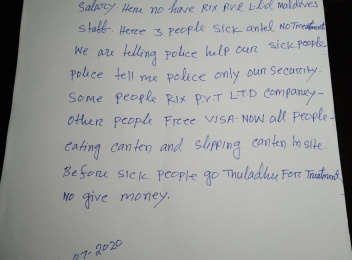 Salary. Here no have RIX PVR Ltd maldives
staff. Here 3 people sick antel NO Treatment
we are telling police help our sick people
police tell me police only our Security.
Some people RIX P.V.T L.T.D company-
other people Free VISA. NOW all people-
eating canten and slipping canten In site.
Before sick people go Thuladhu Fore Treatment
No give money.
07-2020